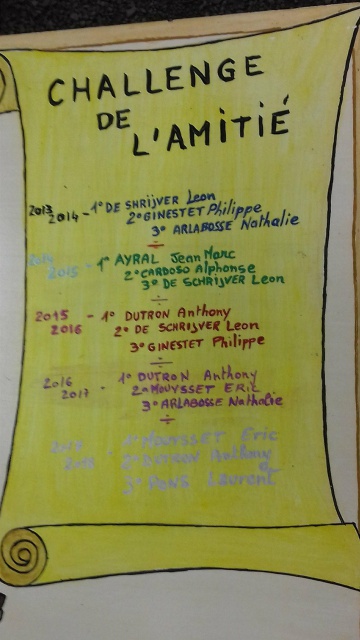 CHALLENGE
DE
L'AMITIÉ
2013 2014 - 1° DE SHRIJVER Leon
2° GINESTET Philippe
3° ARLABOSSE Nathalie
2014 2015 - 1° AYRAL Jean Marc
2° CARDOSO Alphonse
3° DE SCHRIJVER Leon
2015 - 1° DUTRON Anthony
2016 2° DE SCHRIJVER Leon
3° GINESTET Philippe
2016 2017 - 1° DUTRON Anthony
2° MOUYSSET ERIC
3° ARLABOSSE Nathalie
2017 2018 - 1° MOUYSSET Eric
2° DUTRON Anthony
3° PONS Laurent